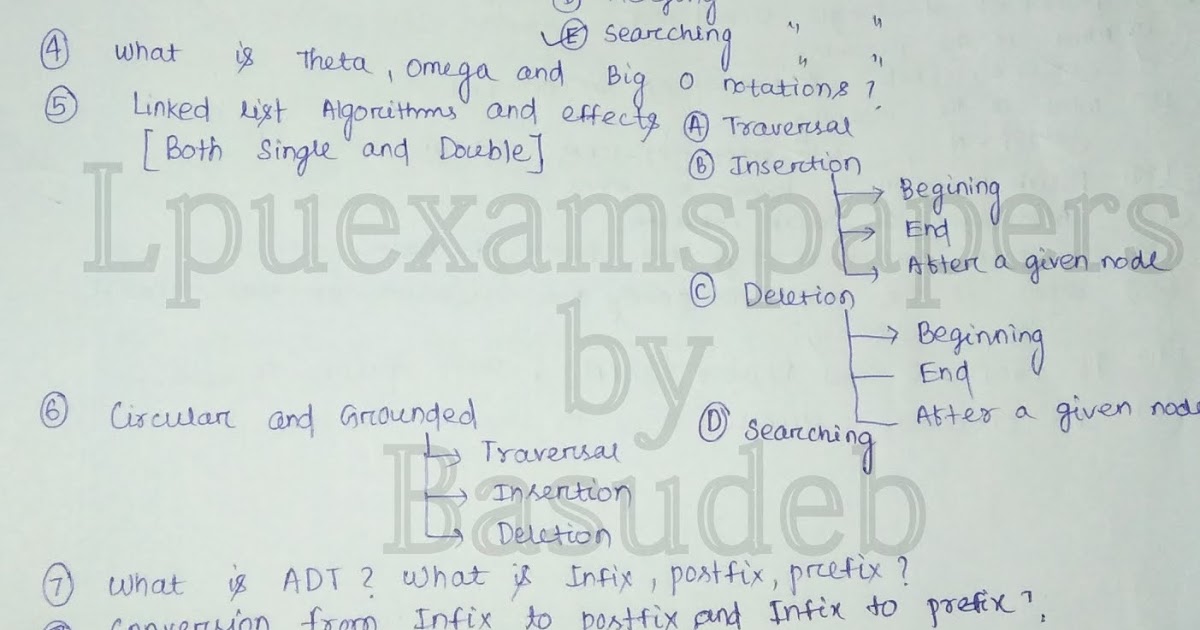 Ⓔ Searching " "
④ What is Theta, Omega and Big O notations?
⑤ Linked list Algorithms and effects
[Both Single and Double]
Ⓐ Traversal
Ⓑ Insertion
Begining
End
After a given node
Ⓒ Deletion
Beginning
End
After a given node
Ⓓ Searching
⑥ Circular and Grounded
Traversal
Insertion
Deletion
⑦ What is ADT? What is Infix, postfix, prefix?
Conversion from Infix to postfix and Infix to prefix?
Lpuexamspapers
by
Basudeb